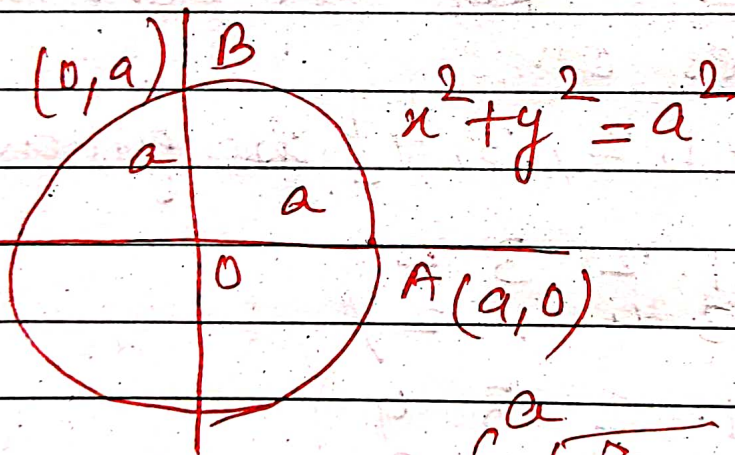 (0,a) B
x²+y²=a²
a
a
O
A(a,0)
a
∫√